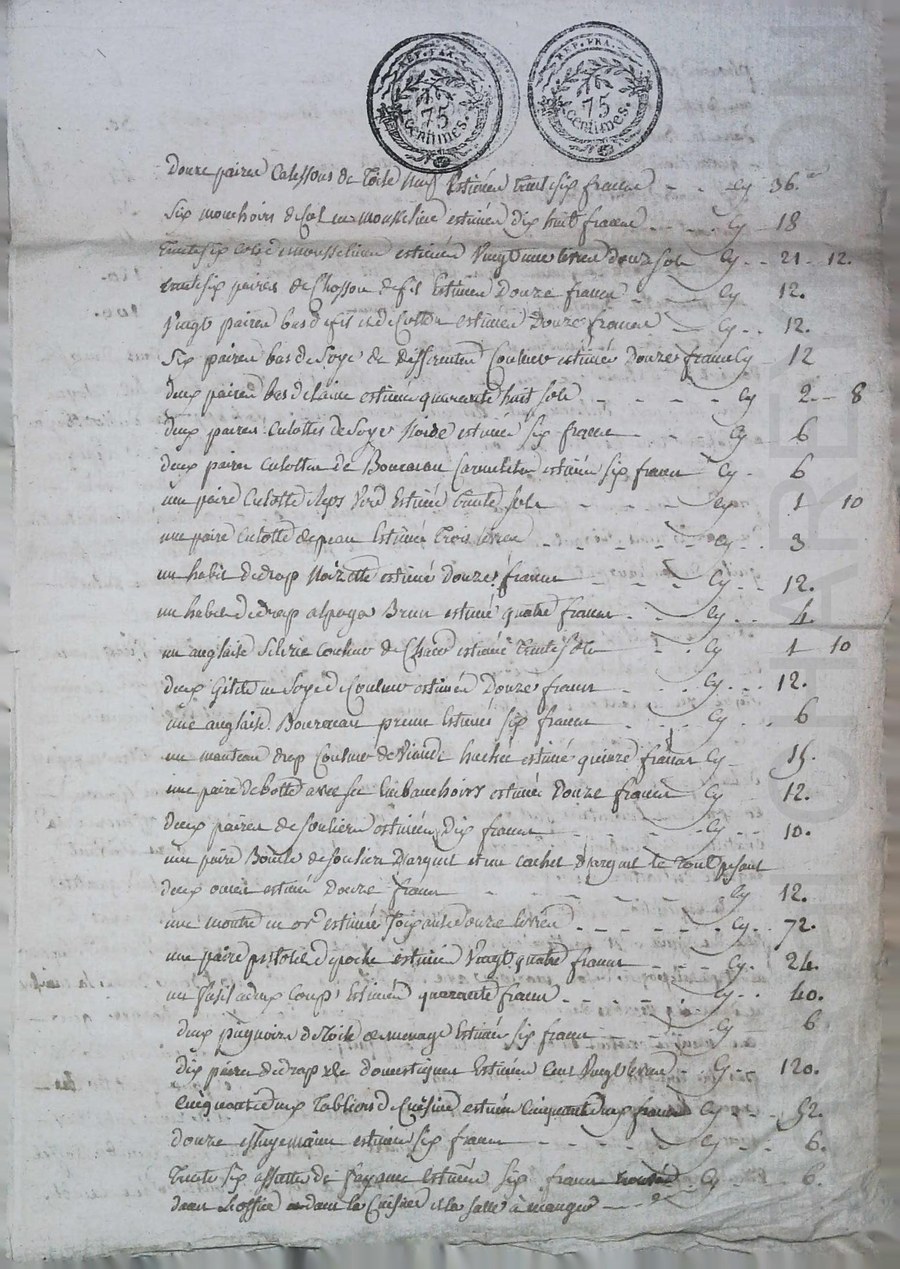 REP. FRA. 75 Centimes.
REP. FRA. 75 Centimes.
Douze paires Calessons de Toile neuf Estimés trente six francs - - Cy 36.
Six mouchoirs de Col en mousseline estimés dix huit francs - - Cy - 18
Trente six Cols de mousseline estimés Vingt une livres douze sols Cy - - 21 - 12.
trente six paires de Chosson de fil Estimés Douze francs - - Cy 12.
Vingt paires bas de fil et de Cotton estimés Douze francs - Cy - . 12.
Six paires bas de Soye de differentes Couleurs estimés Douze francs Cy 12
deux paires bas de Laine estimés quarante huit sols - - - - - Cy 2. - 8
deux paires Culottes de Soye Noire estimés six francs - - - Cy 6
deux paires Culottes de Bouracan Carmelite estimés six francs Cy - 6
une paire Culotte Reps Verd Estimée trente sols - - - Cy 1 10
une paire Culotte de peau Estimée Trois livres - - - - - Cy - . 3
un habit de drap Noizette estimé douze francs - - - Cy - . 12.
un habit de drap alpaga Brun estimé quatre francs - - Cy - . 4
un anglaise Couleur de estimé trente sols - - Cy 1 10
deux Gilets en Soye de Couleur estimés Douze francs - - . Cy - - . 12.
une anglaise Bouracan prune Estimé six francs - - Cy . . 6
un manteau drap Couleur de Viande hachée estimé quinze francs Cy - 15.
une paire de botte avec ses Embauchoirs estimée Douze francs Cy - 12.
deux paires de souliers estimés dix francs - - - Cy - - 10.
une paire Boucle de soulier D'argent et un cachet D'argent le tout pesant
deux onces estimé Douze francs - - - - Cy 12.
une montre en or estimée soixante douze livres - - - - - Cy - . 72.
une paire pistolets de poche estimée Vingt quatre francs - - Cy. 24.
un fusil a deux Coups Estimé quarante francs - - - - Cy - . 40.
deux pegnoirs de Toile de menage Estimés six francs - - - Cy - 6
dix paires de drap de domestiques Estimées Cent Vingt livres - Cy - - 120.
Cinquante deux Tabliers de Cuisine estimés Cinquante deux francs Cy - - 52.
Douze Essuyemains estimés six francs - - - - Cy - - 6.
Trente six assiettes de fayance estimées six francs trouvés Cy - - 6.
dans L'office et dans la Cuisine et la salle à manger -